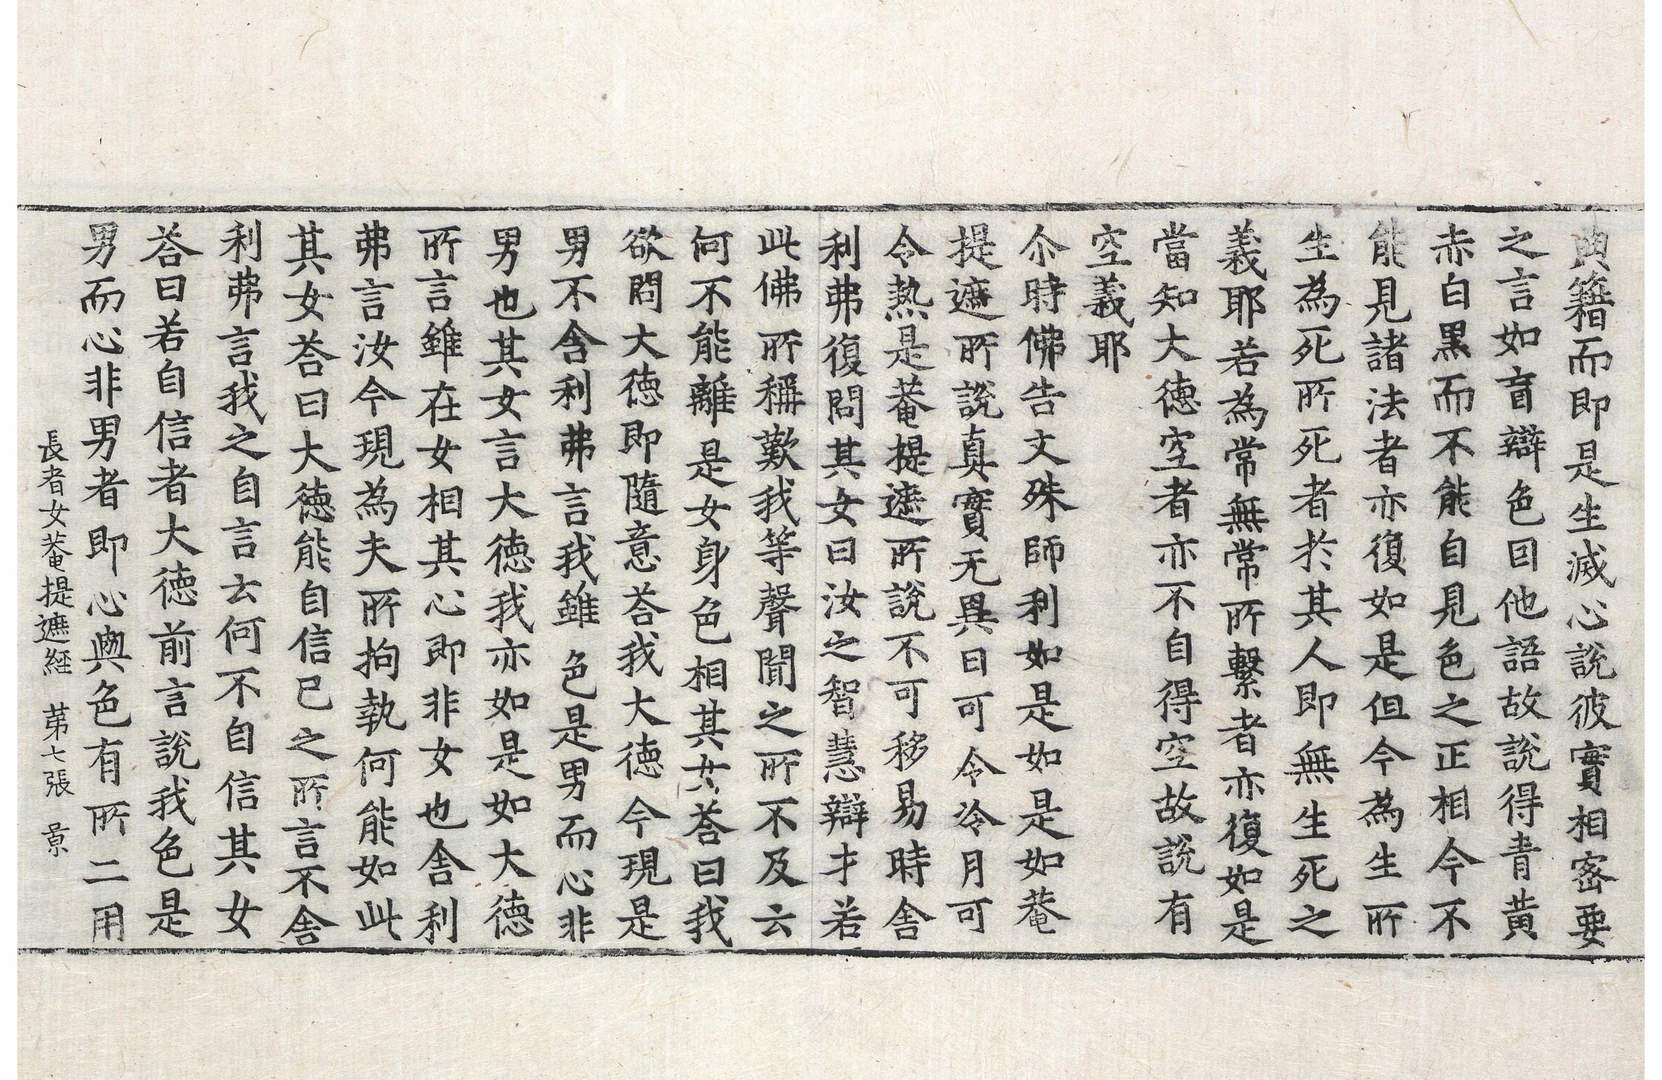 典籍而即是生滅心說彼實相密要
之言如盲辯色因他語故說得青黃
赤白黒而不能自見色之正相今不
能見諸法者亦復如是但今為生所
生為死所死者於其人即無生死之
義耶若為常無常所繫者亦復如是
當知大德空者亦不自得空故說有
空義耶
尒時佛告文殊師利如是如是如菴
提遮所說真實无異日可令冷月可
令熱是菴提遮所說不可移易時舍
利弗復問其女曰汝之智慧辯才若
此佛所稱歎我等聲聞之所不及云
何不能離是女身色相其女荅曰我
欲問大德即隨意荅我大德今現是
男不舍利弗言我雖色是男而心非
男也其女言大德我亦如是如大德
所言雖在女相其心即非女也舍利
弗言汝今現為夫所拘執何能如此
其女荅曰大德能自信己之所言不舍
利弗言我之自言云何不自信其女
荅曰若自信者大德前言說我色是
男而心非男者即心與色有所二用
長者女菴提遮經　苐七張　景